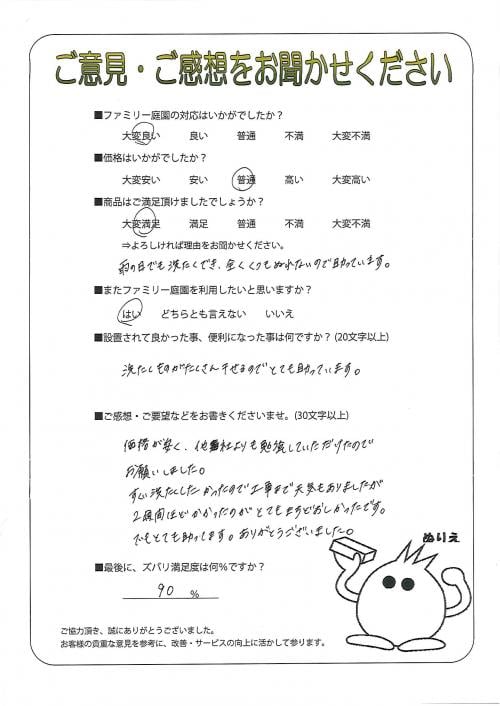 ご意見・ご感想をお聞かせください
■ファミリー庭園の対応はいかがでしたか？
大変良い 良い 普通 不満 大変不満
■価格はいかがでしたか？
大変安い 安い 普通 高い 大変高い
■商品はご満足頂けましたでしょうか？
大変満足 満足 普通 不満 大変不満
⇒よろしければ理由をお聞かせください。
雨の日でも洗たくでき、全くくつもぬれないので助っています。
■またファミリー庭園を利用したいと思いますか？
はい どちらとも言えない いいえ
■設置されて良かった事、便利になった事は何ですか？(20文字以上)
洗たくものがたくさん干せるのでとても助っています。
■ご感想・ご要望などをお書きくださいませ。(30文字以上)
価格が安く、他社よりも勉強していただけたので
お願いしました。
すぐ洗たくしたかったので工事まで天気もありましたが
2週間ほどかかったのがとてもまちどおしかったです。
でもとても助ってます。ありがとうございました。
ぬりえ
■最後に、ズバリ満足度は何%ですか？
90 %
ご協力頂き、誠にありがとうございました。
お客様の貴重な意見を参考に、改善・サービスの向上に活かして参ります。